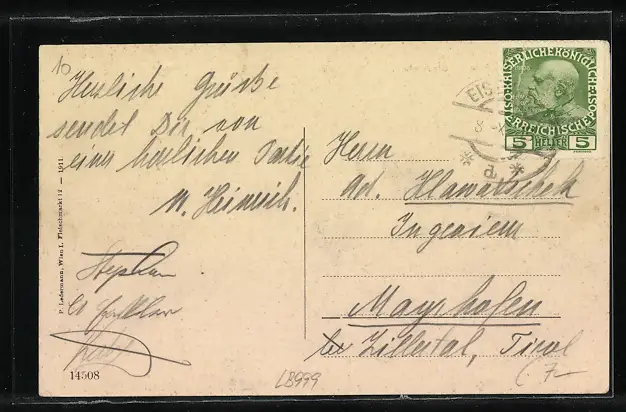 10
Herzliche Grüsse
sendet Dir von
einer herrlichen Partie
M. Heinrich.
Stephan
P. Ledermann, Wien I. Fleischmarkt 12 — 1911.
14508
LB999
EIS
KAISERLICHE KÖNIGLICHE
ÖSTERREICHISCHE
5 HELLER 5
Herrn
Ad. Hlawatschek
Ingenieur
Mayrhofen
bei Zillertal, Tirol
7-